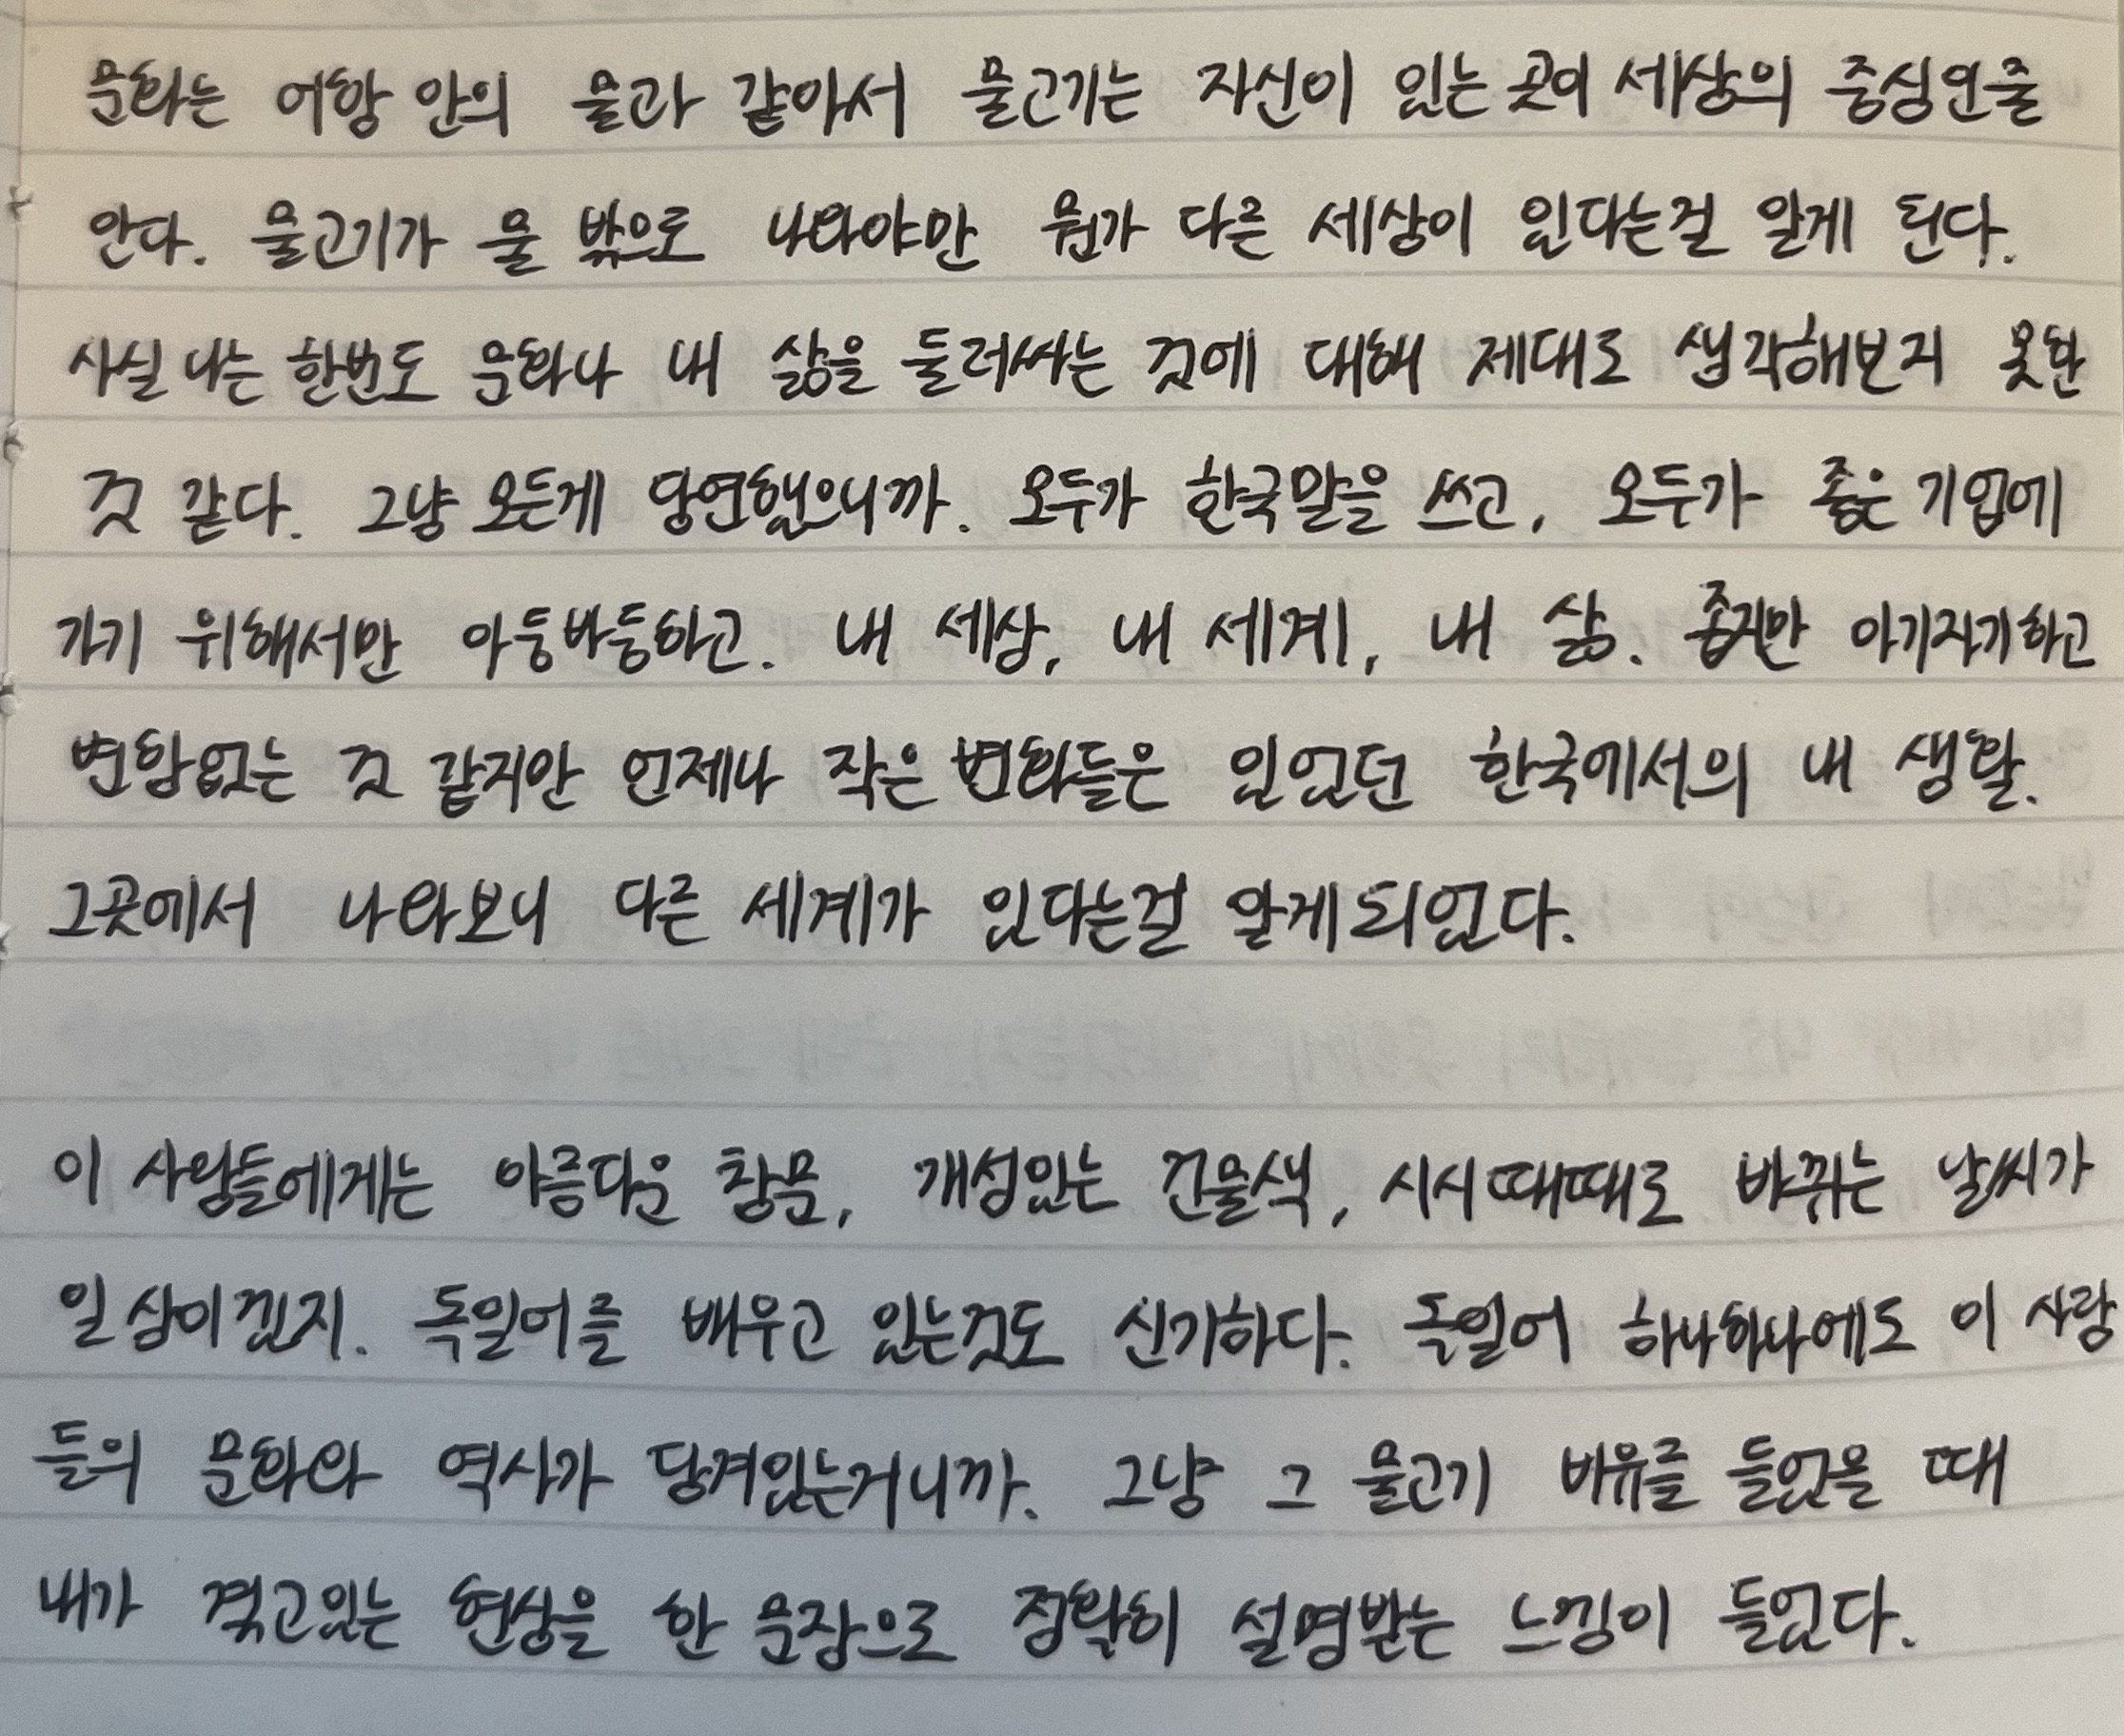 문화는 어항 안의 물과 같아서 물고기는 자신이 있는 곳이 세상의 중심인줄
안다. 물고기가 물 밖으로 나와야만 뭔가 다른 세상이 있다는걸 알게 된다.
사실 나는 한번도 문화나 내 삶을 둘러싸는 것에 대해 제대로 생각해보지 못한
것 같다. 그냥 모든게 당연했으니까. 모두가 한국말을 쓰고, 모두가 좋은 기업에
가기 위해서만 아둥바둥하고. 내 세상, 내 세계, 내 삶. 좁지만 아기자기하고
변함없는 것 같지만 언제나 작은 변화들은 있었던 한국에서의 내 생활.
그곳에서 나와보니 다른 세계가 있다는걸 알게되었다.
이 사람들에게는 아름다운 창문, 개성있는 건물색, 시시때때로 바뀌는 날씨가
일상이겠지. 독일어를 배우고 있는것도 신기하다. 독일어 하나하나에도 이 사람
들의 문화와 역사가 담겨있는거니까. 그냥 그 물고기 비유를 들었을 때
내가 겪고있는 현상을 한 문장으로 정확히 설명받는 느낌이 들었다.